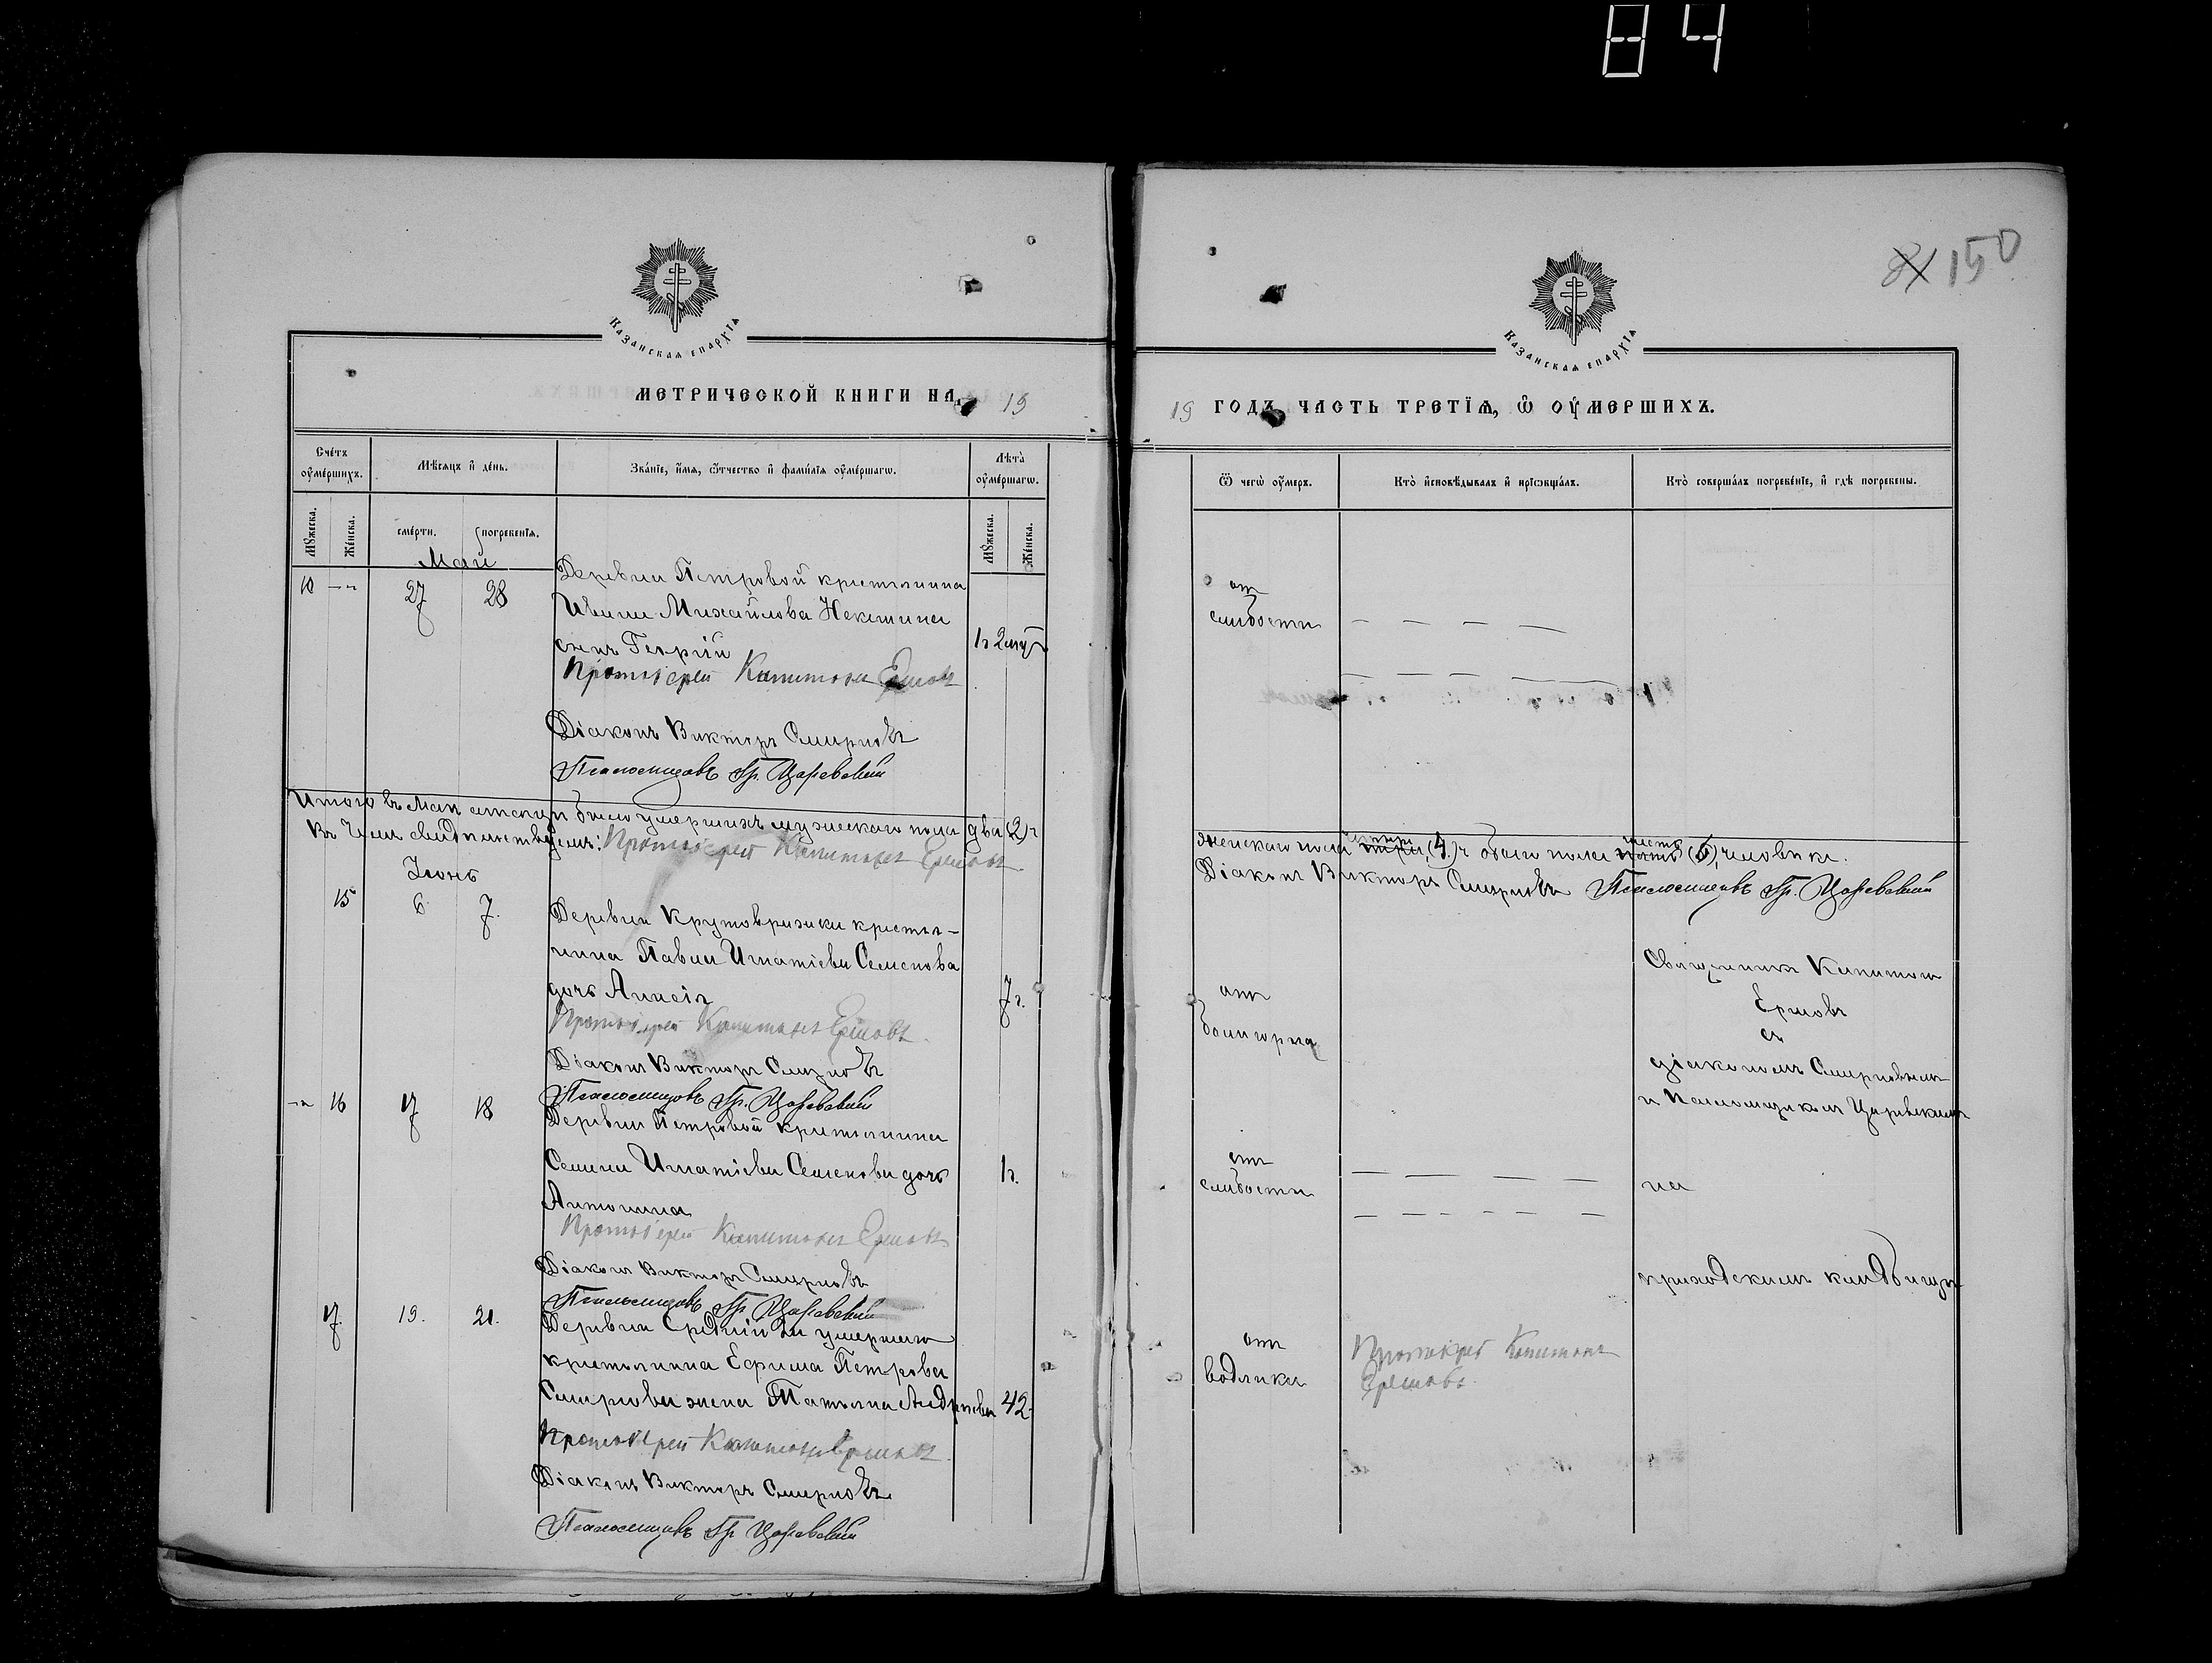 84
8X 150
Казанская епархія
Казанская епархія
МЕТРИЧЕСКОЙ КНИГИ НА 19
19 ГОДЪ, ЧАСТЬ ТРЕТІѦ, Ѽ ОУМЕРШИХЪ.
Счетъ оумершихъ.
Мѣсяцъ и день.
Званіе, имя, отчество и фамилія оумершагѡ.
Лѣта оумершагѡ.
Мужеска.
Женска.
смерти.
погребенія.
Мужеска.
Женска.
Ѿ чегѡ оумеръ.
Кто исповѣдывалъ и пріобщалъ.
Кто совершалъ погребеніе, и гдѣ погребены.
Май
10 — " 27 28
Деревни Петровой крестьянина
Ивана Михайлова Некалина
сынъ Георгій
1 г 2 мѣ
отъ
слабости
Протоіерей Капитонъ Ершовъ
Діаконъ Викторъ Смирновъ
Псаломщикъ Гр. Царевскій
Итого въ Маѣ мѣсяцѣ было умершихъ мужескаго пола два (2) и
женскаго пола четыре (4) и обоего пола шесть (6) человѣкъ.
Въ чемъ свидѣтельствуемъ: Протоіерей Капитонъ Ершовъ.
Діаконъ Викторъ Смирновъ Псаломщикъ Гр. Царевскій
Іюнь
15 6 7.
Деревни Крутовражки крестья-
нина Павла Игнатіева Семенова
дочь Анисія
7 г.
отъ
Протоіерей Капитонъ Ершовъ.
Діаконъ Викторъ Смирновъ
Псаломщикъ Гр. Царевскій
Священникъ Капитонъ
Ершовъ
съ
діакономъ Смирновымъ
и Псаломщикомъ Царевскимъ
на
приходскомъ кладбищѣ
— " 16 17 18
Деревни Петровой крестьянина
Семена Игнатіева Семенова дочь
Антонина
1 г.
отъ
слабости
Протоіерей Капитонъ Ершовъ
Діаконъ Викторъ Смирновъ
Псаломщикъ Гр. Царевскій
17. 19. 21.
Деревни Средній умершаго
крестьянина Ефима Петрова
Смирнова жена Татьяна Андреева 42.
отъ
водянки
Протоіерей Капитонъ
Ершовъ.
Протоіерей Капитонъ Ершовъ.
Діаконъ Викторъ Смирновъ
Псаломщикъ Гр. Царевскій